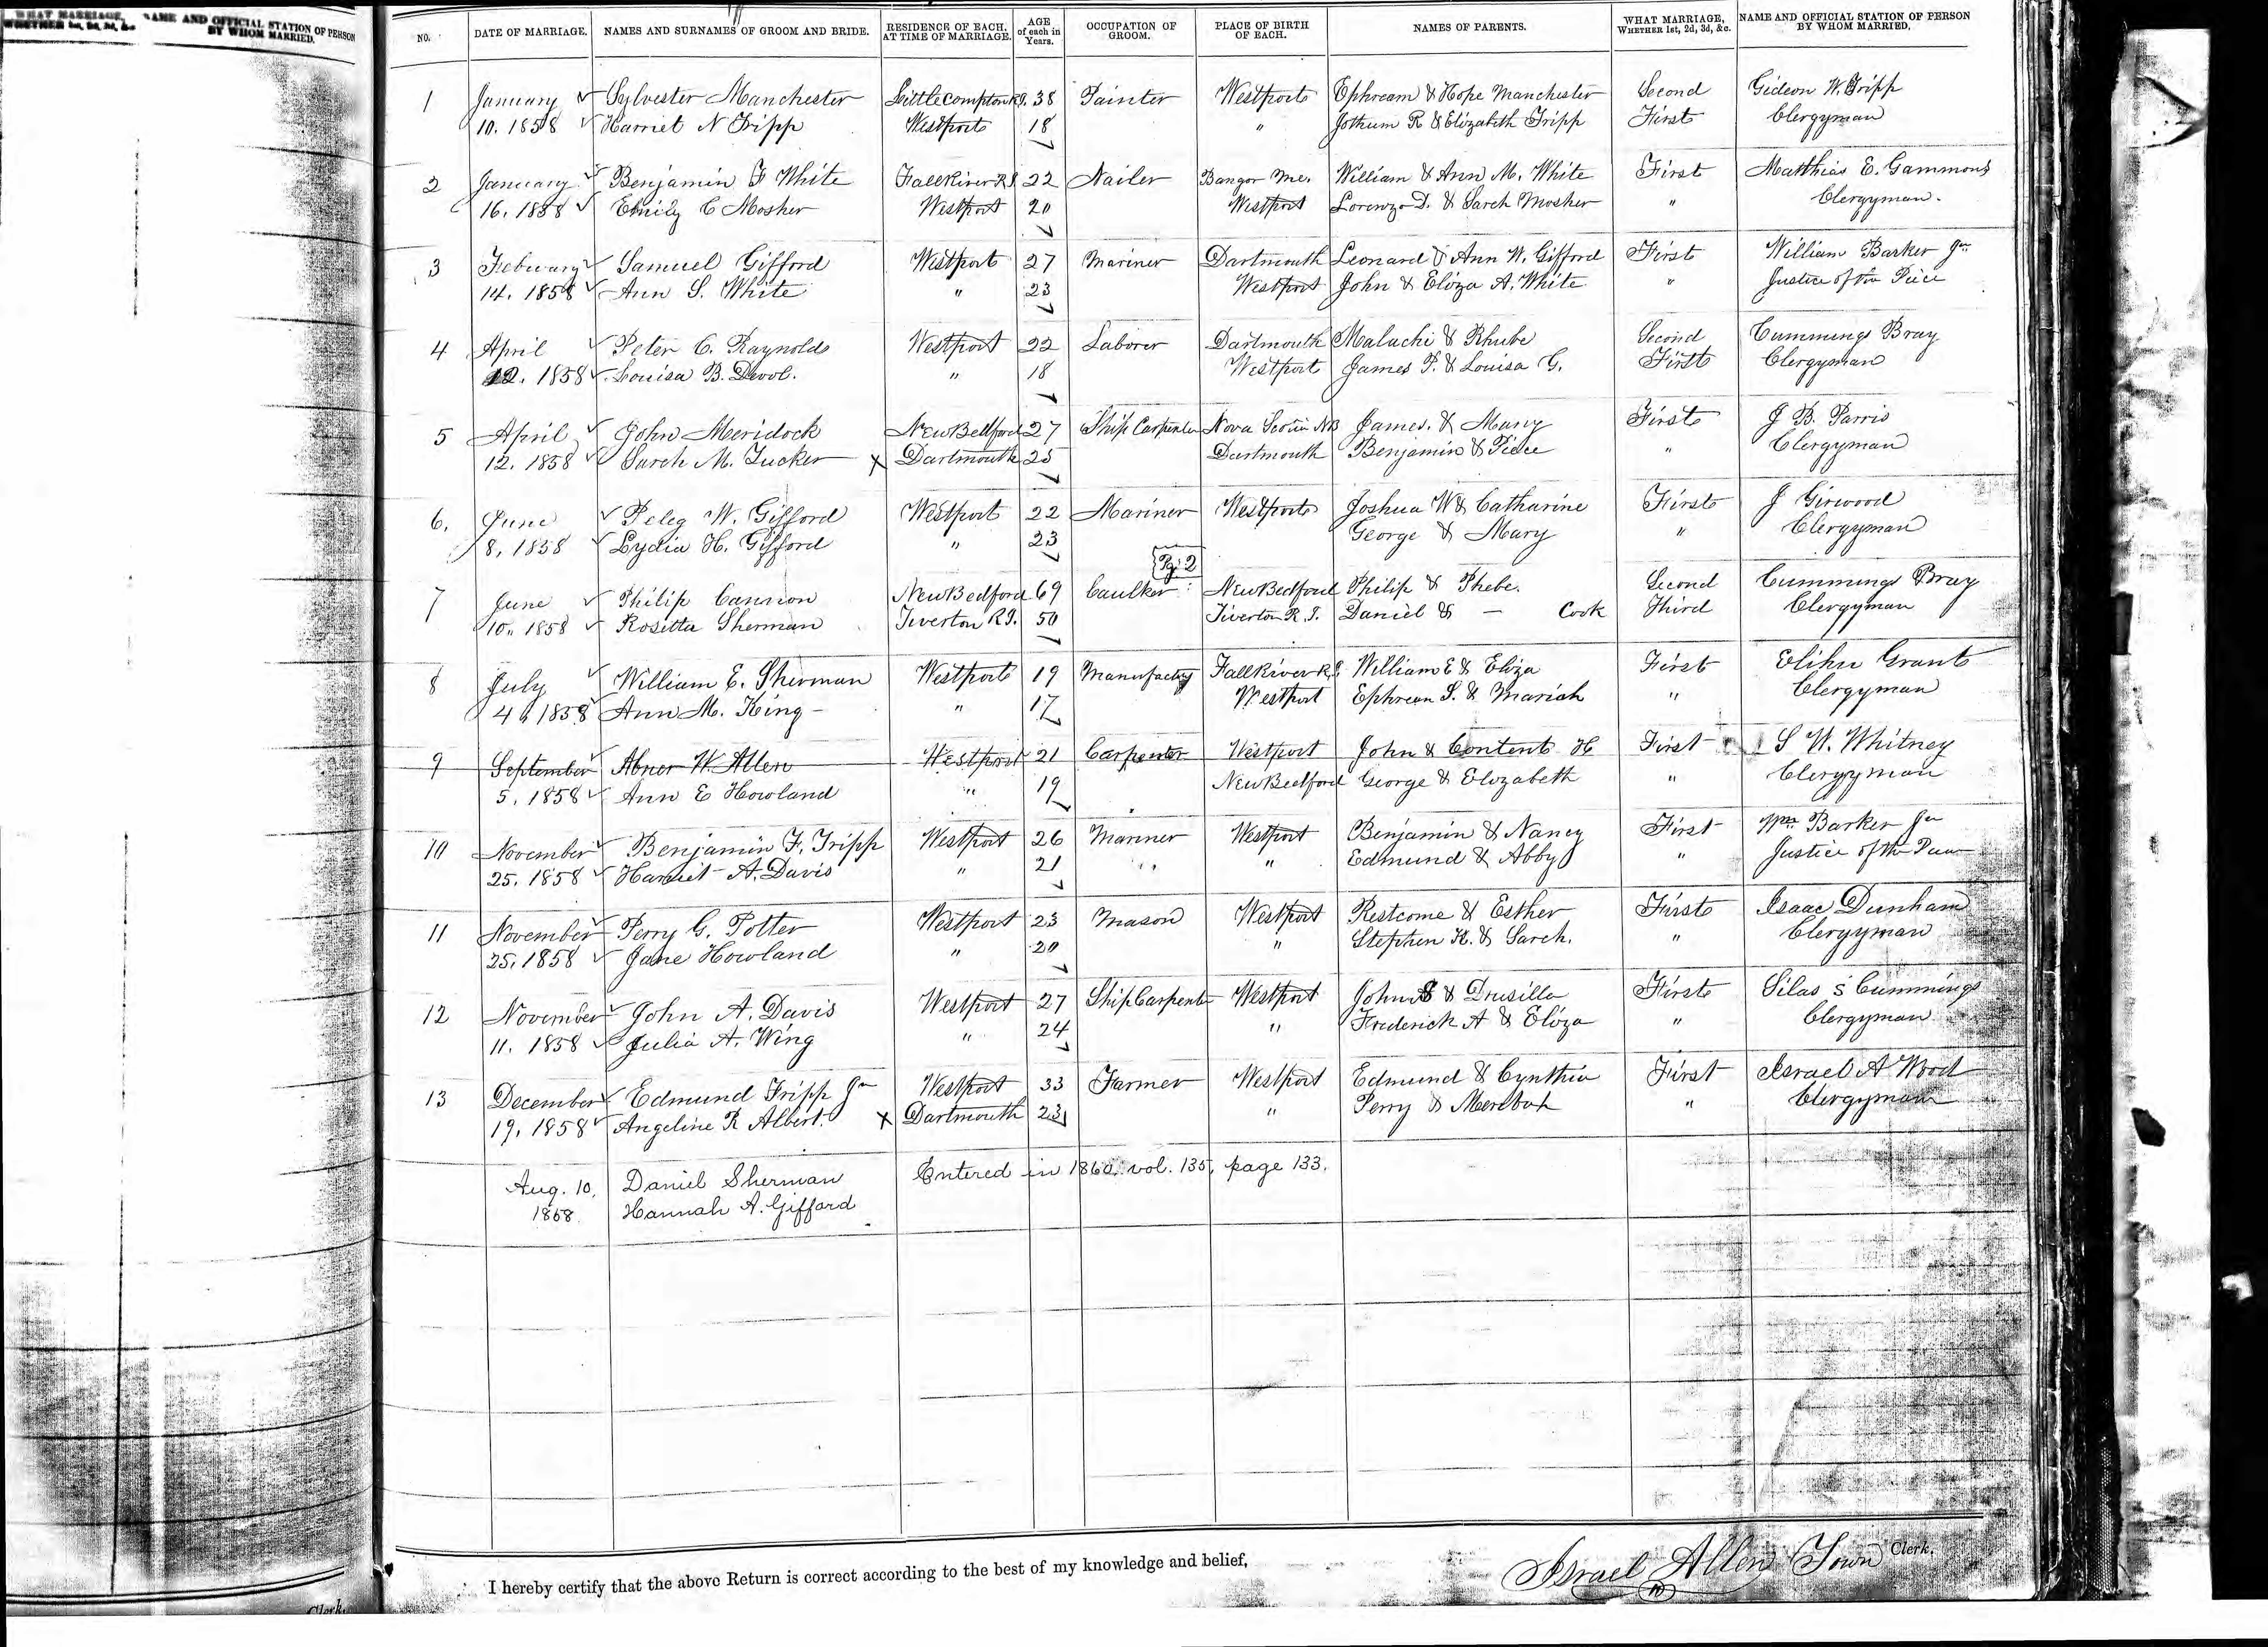 WHAT MARRIAGE, NAME AND OFFICIAL STATION OF PERSON
WHETHER 1st, 2d, 3d, &c. BY WHOM MARRIED.
NO. DATE OF MARRIAGE. NAMES AND SURNAMES OF GROOM AND BRIDE. RESIDENCE OF EACH AT TIME OF MARRIAGE. AGE of each in Years. OCCUPATION OF GROOM. PLACE OF BIRTH OF EACH. NAMES OF PARENTS. WHAT MARRIAGE, WHETHER 1st, 2d, 3d, &c. NAME AND OFFICIAL STATION OF PERSON BY WHOM MARRIED.
1 January Sylvester Manchester Little Compton R.I. 38 Painter Westport Ephream & Hope Manchester Second Gideon W. Tripp
10. 1858 Harriet N Tripp Westport 18 " Jothum R & Elizabeth Tripp First Clergyman
2 January Benjamin F White Fall River R.I. 22 Nailer Bangor Me. William & Ann M. White First Matthias E. Gammons
16. 1858 Emily C Mosher Westport 20 Westport Lorenzo D. & Sarah Mosher " Clergyman.
3 Febuary Samuel Gifford Westport 27 Mariner Dartmouth Leonard & Ann W. Gifford First William Barker Jr
14. 1858 Ann S. White " 23 Westport John & Eliza A. White " Justice of the Piece
4 April Peter C. Raynolds Westport 22 Laborer Dartmouth Maluchi & Rhube Second Cummings Bray
12. 1858 Louisa B. Devol. " 18 Westport James F. & Louisa G. First Clergyman
5 April John Meridock New Bedford 27 Ship Carpenter Nova Scotia NB James. & Mary First J B. Parris
12. 1858 Sarah M. Tucker X Dartmouth 25 Dartmouth Benjamin & " Clergyman
6. June Peleg W. Gifford Westport 22 Mariner Westport Joshua W & Catharine First J Girwood
8, 1858 Lydia H. Gifford " 23 George & Mary " Clergyman
Pg. 2
7 June Philip Cannon New Bedford 69 Caulker New Bedford Philip & Phebe. Second Cummings Bray
10. 1858 Rosetta Sherman Tiverton R.I. 50 Tiverton R.I. Daniel & — Cook Third Clergyman
8 July William E. Sherman Westport 19 Manufactory Fall River R.I. William E & Eliza First Elihu Grant
4 1858 Ann M. King - " 17 Westport Ephream S. & Mariah " Clergyman
9 September Abner W. Allen Westport 21 Carpenter Westport John & Content H First S W. Whitney
5. 1858 Ann E Howland " 19 New Bedford George & Elizabeth " Clergyman
10 November Benjamin F. Tripp Westport 26 Mariner Westport Benjamin & Nancy First Wm Barker Jr
25. 1858 Harriet A. Davis " 21 " Edmund & Abby " Justice of the
11 November Perry G. Potter Westport 23 Mason Westport Restcome & Esther First Isaac Dunham
25, 1858 Jane Howland " 20 " Stephen H. & Sarah. " Clergyman
12 November John A. Davis Westport 27 Ship Carpenter Westport John S & Drusilla First Silas S Cummings
11. 1858 Julia A. Wing " 24 " Frederick A & Eliza " Clergyman
13 December Edmund Tripp Jr Westport 33 Farmer Westport Edmund & Cynthia First Israel A Wood
19, 1858 Angeline R Albert. X Dartmouth 23 " Perry & " Clergyman
Aug. 10, Daniel Sherman Entered in 1860. vol. 135, page 133.
1858 Hannah A. Gifford
I hereby certify that the above Return is correct according to the best of my knowledge and belief,
Israel Allen Town Clerk.
Clerk.